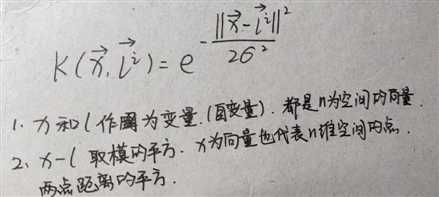 K(x⃗, l⃗ⁱ) = e^{-\frac{||x⃗-l⃗ⁱ||²}{2σ²}}
1. x 和 l 作为变量. (自变量). 都是n为空间的向量.
2. x-l 取模的平方. x为向量也代表n维空间的点.
两点距离的平方.